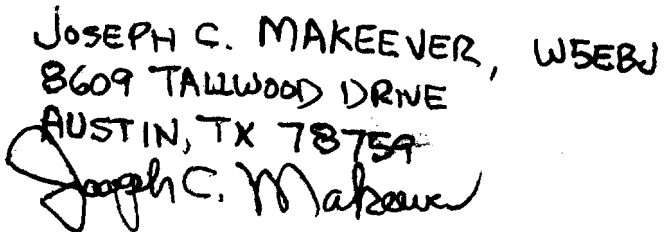 JOSEPH C. MAKEEVER, W5EBJ
8609 TALLWOOD DRIVE
AUSTIN, TX 78759
Joseph C. Makeever